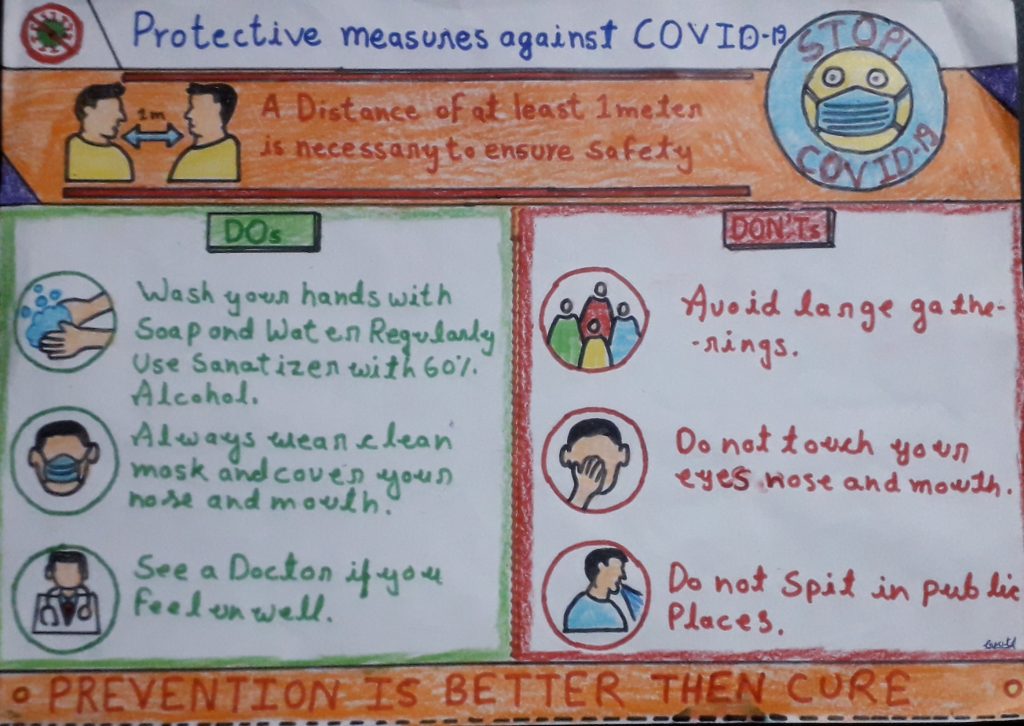 Protective measures against COVID-19
STOP!
COVID-19
1m
A Distance of at least 1 meter
is necessary to ensure safety
DOs
Wash your hands with
Soap and Water Regularly
Use Sanatizer with 60%
Alcohol.
Always wear clean
mask and cover your
nose and mouth.
See a Doctor if you
Feel un well.
DON'Ts
Avoid large gathe-
-rings.
Do not touch your
eyes nose and mouth.
Do not Spit in public
Places.
PREVENTION IS BETTER THEN CURE